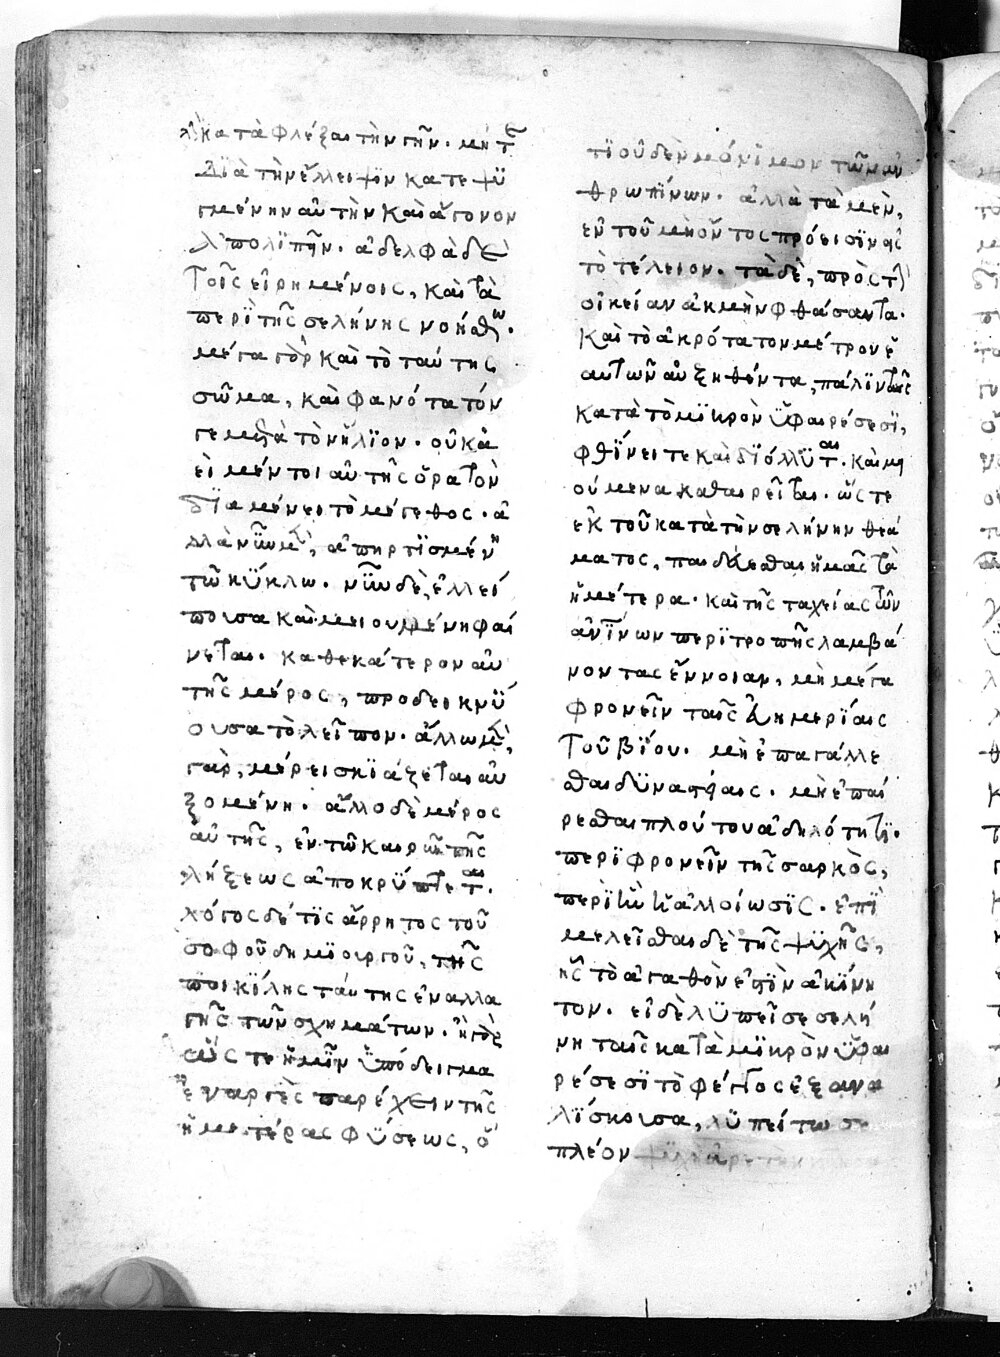 κατὰ φλέξαι τὴν γῆν. μήτε
διὰ τὴν ἔλλειψϊν κατεψϋ
γμένην αὐτὴν καὶ ἄγονον
ἀπολϊπῆν. ἀδελφὰ δὲ
τοῖς εἰρημένοις, καὶ τὰ
περῒ τῆς σελήνης νοήσθω.
μέγα γὰρ καὶ τὸ ταύτης
σῶμα, καὶ φανότατόν
γε μετὰ τὸν ἥλϊον. οὐκ ἀ
εὶ μέντοι αὐτῆς ὁρατὸν
δϊαμένει τὸ μέγεθος. ἀ
λλὰ νῦν μὲν, ἀπηρτϊσμένη
τῶ κϋκλω. νῦν δὲ, ἐλλεί
πουσα καὶ μειουμένη φαί
νεται. καθ' ἑκάτερον αὐ
τῆς μέρος, προδεικνϋ
ουσα τὸ λεῖπον. ἄλλω μὲν
γὰρ, μέρει σκϊάζεται αὐ
ξομένη. ἄλλο δὲ μέρος
αὐτῆς, ἐν τῶ καιρῶ τῆς
λήξεως ἀποκρϋπτεται.
λόγος δέ τϊς ἄρρητος τοῦ
σοφοῦ δημϊουργοῦ, τῆς
ποικϊλης ταύτης ἐναλλα
γῆς τῶν σχημάτων. ἢ γὰρ
ὥς τε ἡμῖν ὑπόδειγμα
ἐναργὲς παρέχειν τῆς
ἡμετέρας φϋσεως, ὅ
τϊ οὐδὲν μόνϊμον τῶν ἀν
θρωπϊνων. ἀλλὰ τὰ μὲν,
ἐκ τοῦ μὴ ὄντος πρόεισϊν εἰς
τὸ τέλειον. τὰ δὲ, πρὸς τὴν
οἰκείαν ἀκμὴν φθάσαντα.
καὶ τὸ ἀκρότατον μέτρον ἑ
αυτῶν αὐξηθέντα, πάλϊν ταῖς
κατὰ τὸ μϊκρὸν ὑφαιρέσεσϊ,
φθϊνει τε καὶ δϊόλλϋται. καὶ μει
ούμενα καθαιρεῖται. ὥς τε
ἐκ τοῦ κατὰ τὴν σελήνην θεά
ματος, παιδεύεσθαι ἡμᾶς τὰ
ἡμέτερα. καὶ τῆς ταχείας τῶν
ἀνϊνων περϊτροπῆς λαμβά
νοντας ἔννοιαν, μὴ μέγα
φρονεῖν ταῖς εὐημερϊαις
τοῦ βϊου. μὴ ἐπαγάλλε
σθαι δϋναστείαις. μὴ ἐπαί
ρεσθαι πλούτου ἀδηλότητϊ.
περϊφρονεῖν τῆς σαρκὸς,
περὶ ἣν ἡ ἀλλοίωσϊς. ἐπϊ
μελεῖσθαι δὲ τῆς ψϋχῆς,
ἧς τὸ ἀγαθὸν ἐστϊν ἀκϊνη
τον. εἰ δὲ λϋπεῖ σε σελή
νη ταῖς κατὰ μϊκρὸν ὑφαι
ρέσεσϊ τὸ φέγγος ἐξανα
λϊσκουσα, λϋπείτω σε
πλέον ψϋχὴ ἀρετὴν